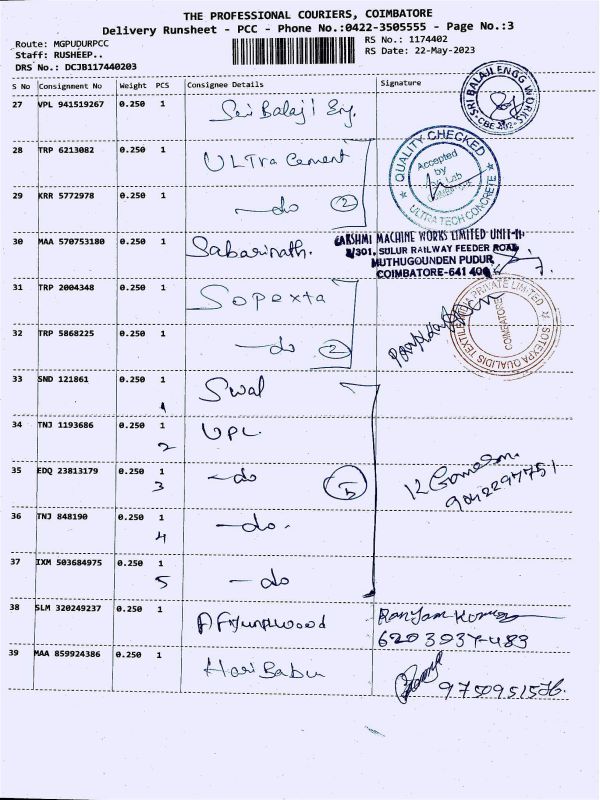 THE PROFESSIONAL COURIERS, COIMBATORE
Delivery Runsheet - PCC - Phone No.:0422-3505555 - Page No.:3
Route: MGPUDURPCC
Staff: RUSHEEP..
DRS No.: DCJB117440203
RS No.: 1174402
RS Date: 22-May-2023
S No Consignment No Weight PCS Consignee Details Signature
27 VPL 941519267 0.250 1 Sri Balaji Eng. SRI BALAJI ENGG WORKS CBE
28 TRP 6213082 0.250 1 ULTra Cement QUALITY CHECKED Accepted by Lab ULTRA TECH CONCRETE
29 KRR 5772978 0.250 1 -do 2
30 MAA 570753180 0.250 1 Sabarinath. LAKSHMI MACHINE WORKS LIMITED UNIT-II
SULUR RAILWAY FEEDER ROAD
MUTHUGOUNDEN PUDUR,
COIMBATORE-641 406
31 TRP 2004348 0.250 1 Sopexta SOTEXPA QUALIDIS TEXTILE PRIVATE LIMITED COIMBATORE
32 TRP 5868225 0.250 1 -do 2
33 SND 121861 0.250 1 Swal
1
34 TNJ 1193686 0.250 1 UPL.
2
35 EDQ 23813179 0.250 1 -do 5
3
36 TNJ 848190 0.250 1 -do.
4
37 IXM 503684975 0.250 1 -do
5
38 SLM 320249237 0.250 1
39 MAA 859924386 0.250 1 Hari Babu